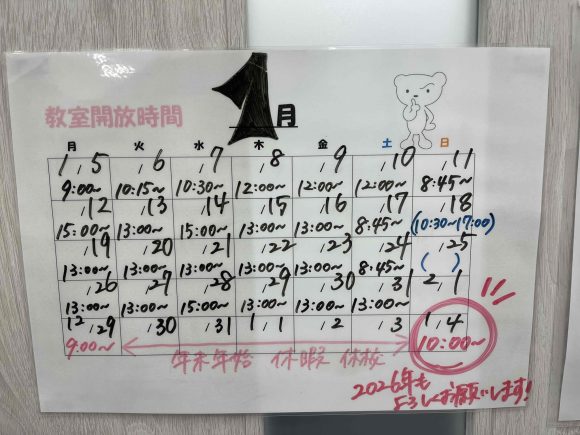 1月
教室開放時間
月 火 水 木 金 土 日
1/5 /6 /7 /8 /9 /10 /11
9:00~ 10:15~ 10:30~ 12:00~ 12:00~ 12:00~ 8:45~
/12 /13 /14 /15 /16 /17 /18
15:00~ 13:00~ 15:00~ 13:00~ 13:00~ 8:45~ (10:30~17:00)
/19 /20 /21 /22 /23 /24 /25
13:00~ 13:00~ 13:00~ 13:00~ 13:00~ 8:45~ ( )
/26 /27 /28 /29 /30 /31 2/1
13:00~ 13:00~ 15:00~ 13:00~ 13:00~ 13:00~
12/29 /30 /31 1/1 /2 /3 1/4
9:00~ 年末年始 休暇 休校 10:00~
2026年も
よろしくお願いします!